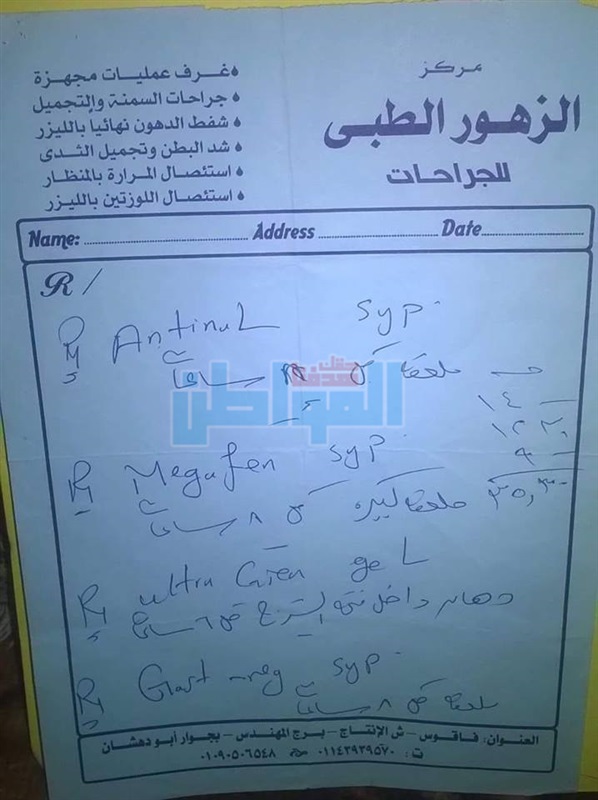 مركز
الزهور الطبى
للجراحات
• غرف عمليات مجهزة
• جراحات السمنة والتجميل
• شفط الدهون نهائيا بالليزر
• شد البطن وتجميل الثدى
• استئصال المرارة بالمنظار
• استئصال اللوزتين بالليزر
Name: Address Date
R /
Antinal syp.
ملعقة كل ساعات
المواطن
١٤
Megafen syp.
ملعقة كبيرة كل ٨ ساعات
ultra gel
دهان داخل فتحة الشرج كل ٦ ساعات
syp.
ملعقة كل ٨ ساعات
العنوان: فاقوس - ش الإنتاج - برج المهندس - بجوار أبو دهشان
ت: ٠١١٤٣٩٣٩٥٧٠ - ٠١٠٩٠٥٠٦٥٤٨